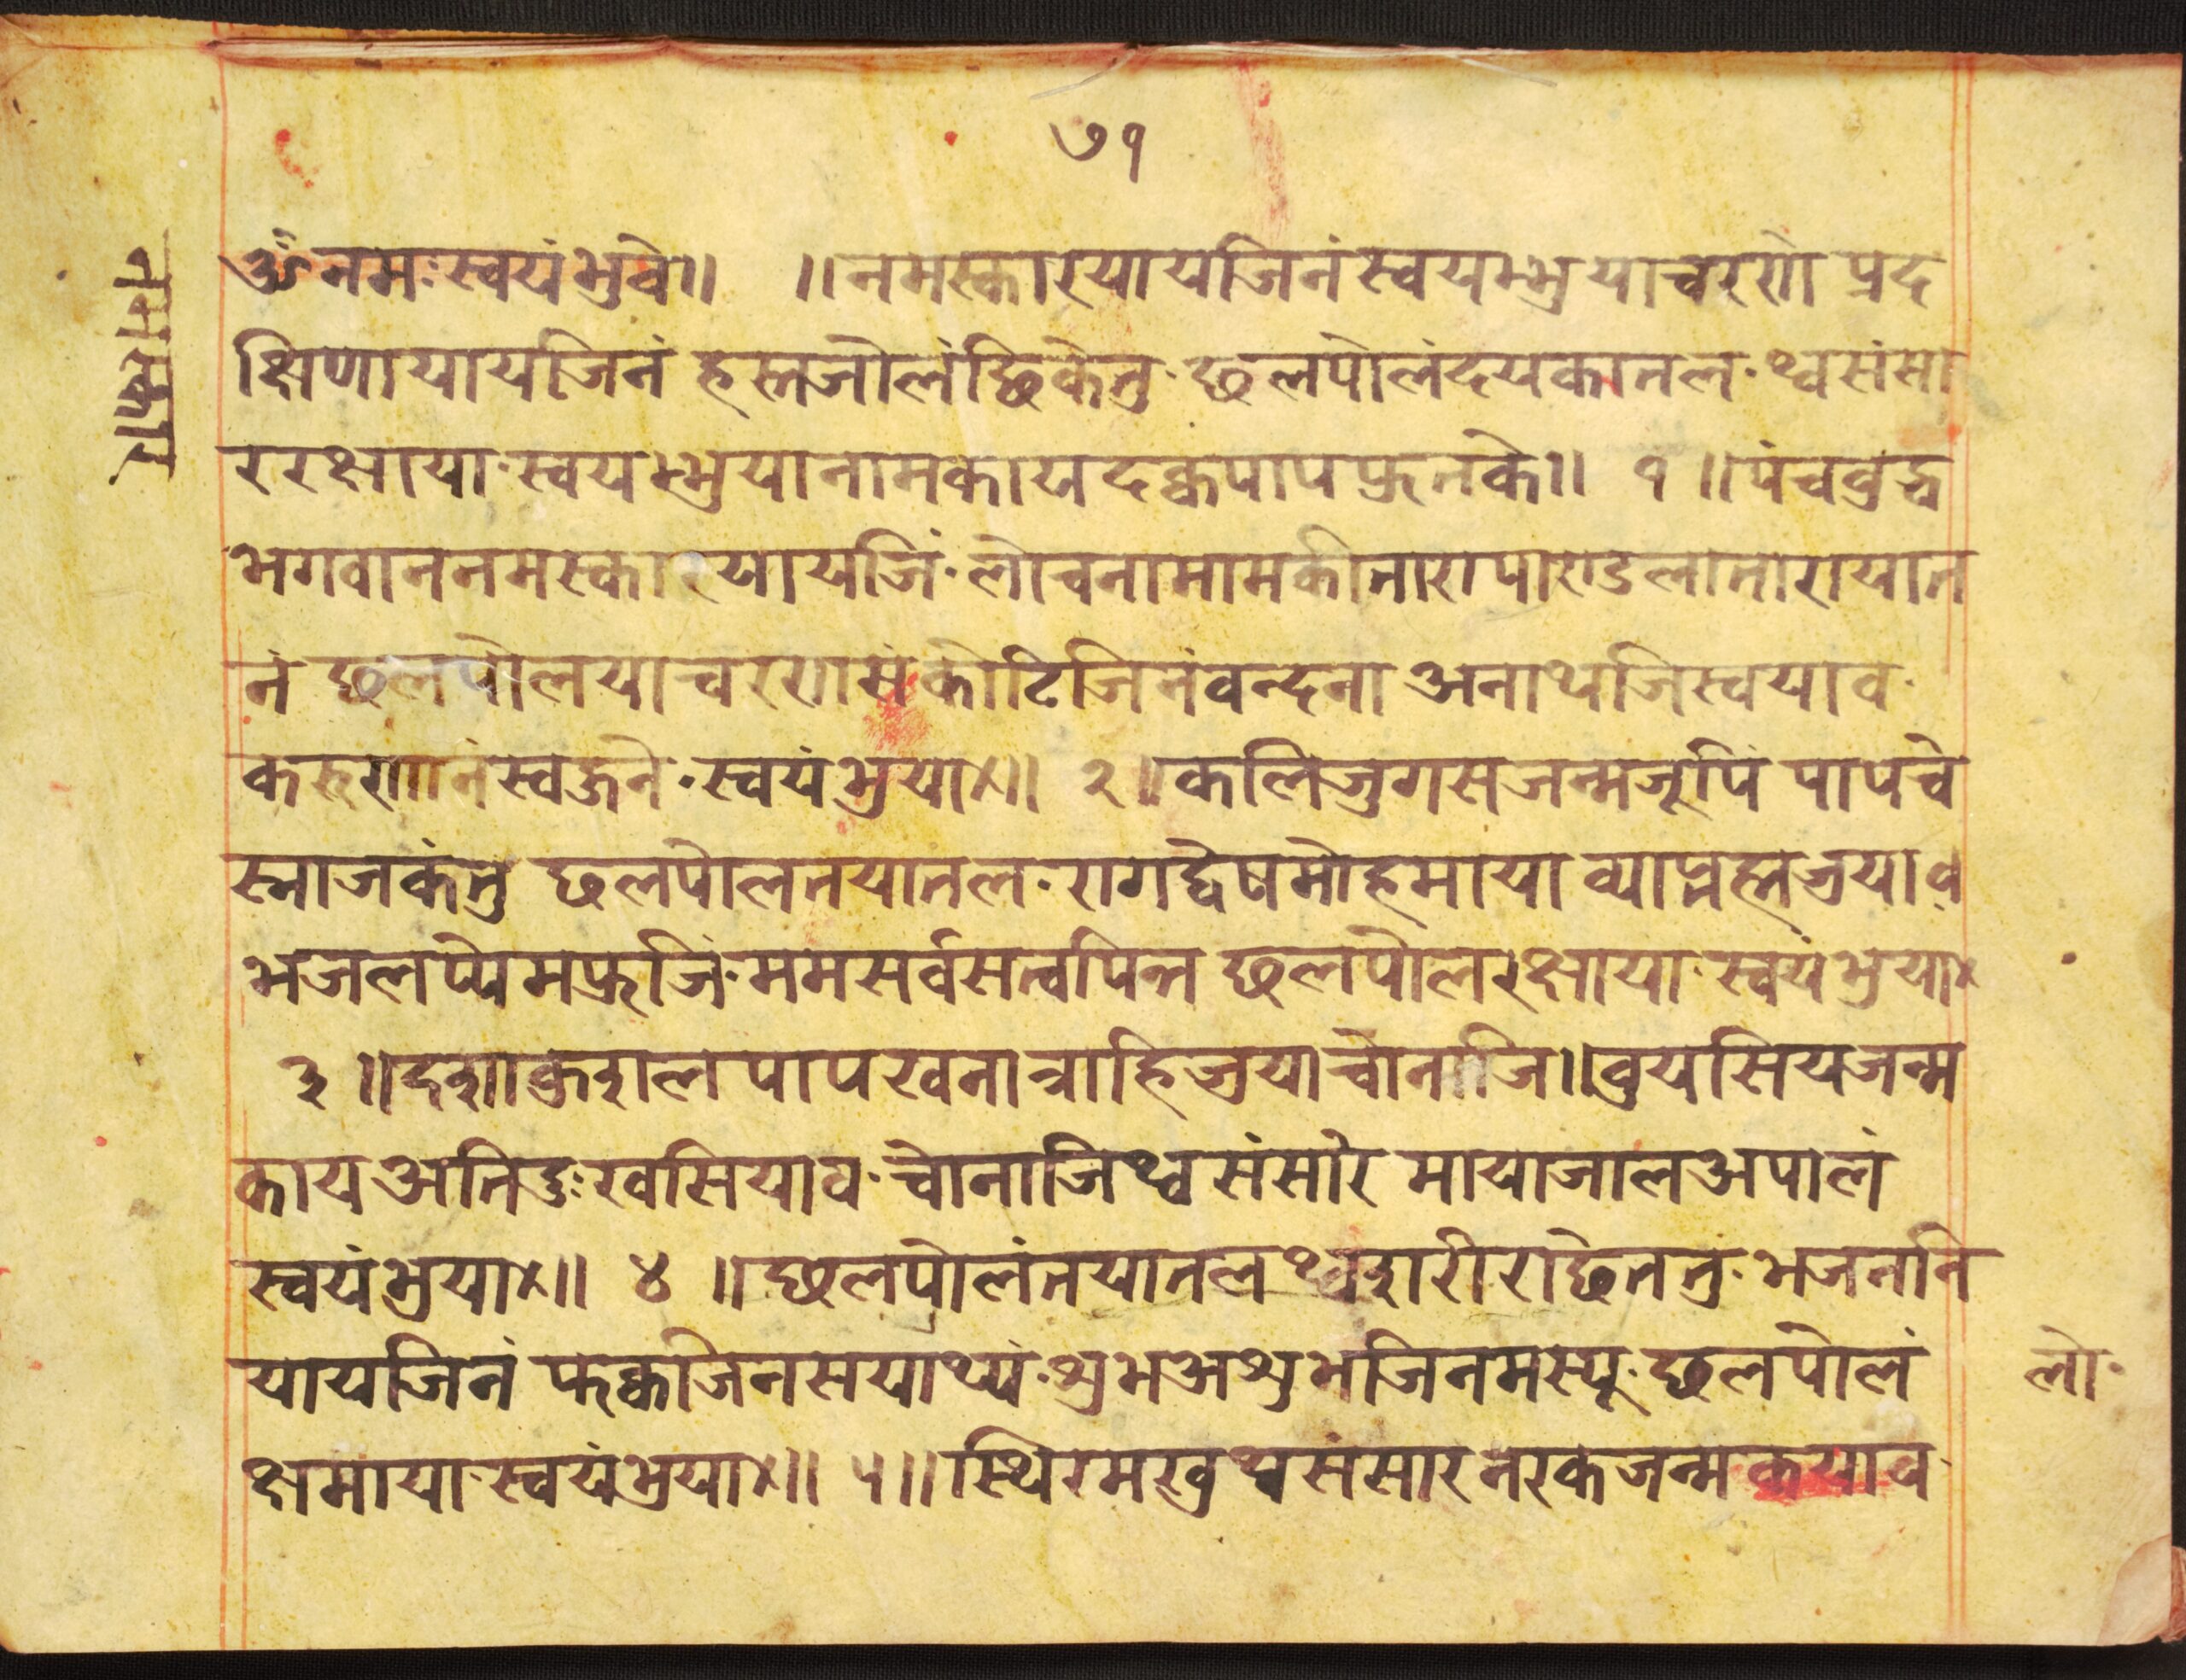 ७१
नमस्कार
ॐ नमः स्वयंभुवे॥ ॥ नमस्कारयायजिनं स्वयम्भुयाचरणे प्रद
क्षिणायायजिनं हस्तजोलंछिकेतु॰ छलपोलंदयकातल॰ थ्वसंसा
ररक्षाया॰ स्वयम्भुयानामकाय दक्वपापफुतके॥ १ ॥ पंचबुद्ध
भगवाननमस्कारयायजिं॰ लोचनामामकीतारापाण्डलातारायान
नं छलपोलयाचरणसं कोटिजिनंवन्दना अनाथजिस्वयाव॰
करुणानं स्वजुने॰ स्वयंभुया×॥ २ ॥ कलिजुगसजन्मजूपिं पापचे
स्ताजकंतु छलपोलनयातल॰ रागद्वेषमोहमाया व्याप्तहृजुयाव
भजलप्येमफुजिं॰ ममसर्वसत्वपिन्त छलपोलरक्षाया॰ स्वयंभुया×
३ ॥ दशाकुशलपापखनात्राहिजुयाचोनाजि॥ बुयसियजन्म
कायअतिदुःखसियाव॰ चोनाजिथ्वसंसारे मायाजालअपालं
स्वयंभुया×॥ ४ ॥ छलपोलंनयातल थ्वशरीराछेतनु॰ भजनति
यायजिनं फक्वजिनसयाथ्यं॰ शुभअशुभजिनमस्यू॰ छलपोलं
लो॰
क्षमाया॰ स्वयंभुया×॥ ५ ॥ स्थिरमखुथ्वसंसार नरकजन्मकयाव॰